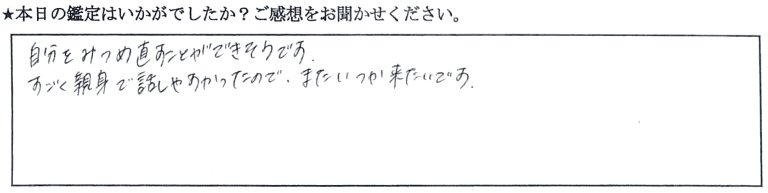 ★本日の鑑定はいかがでしたか？ご感想をお聞かせください。
自分をみつめ直すことができそうです.
すごく親身で話しやすかったので、またいつか来たいです.